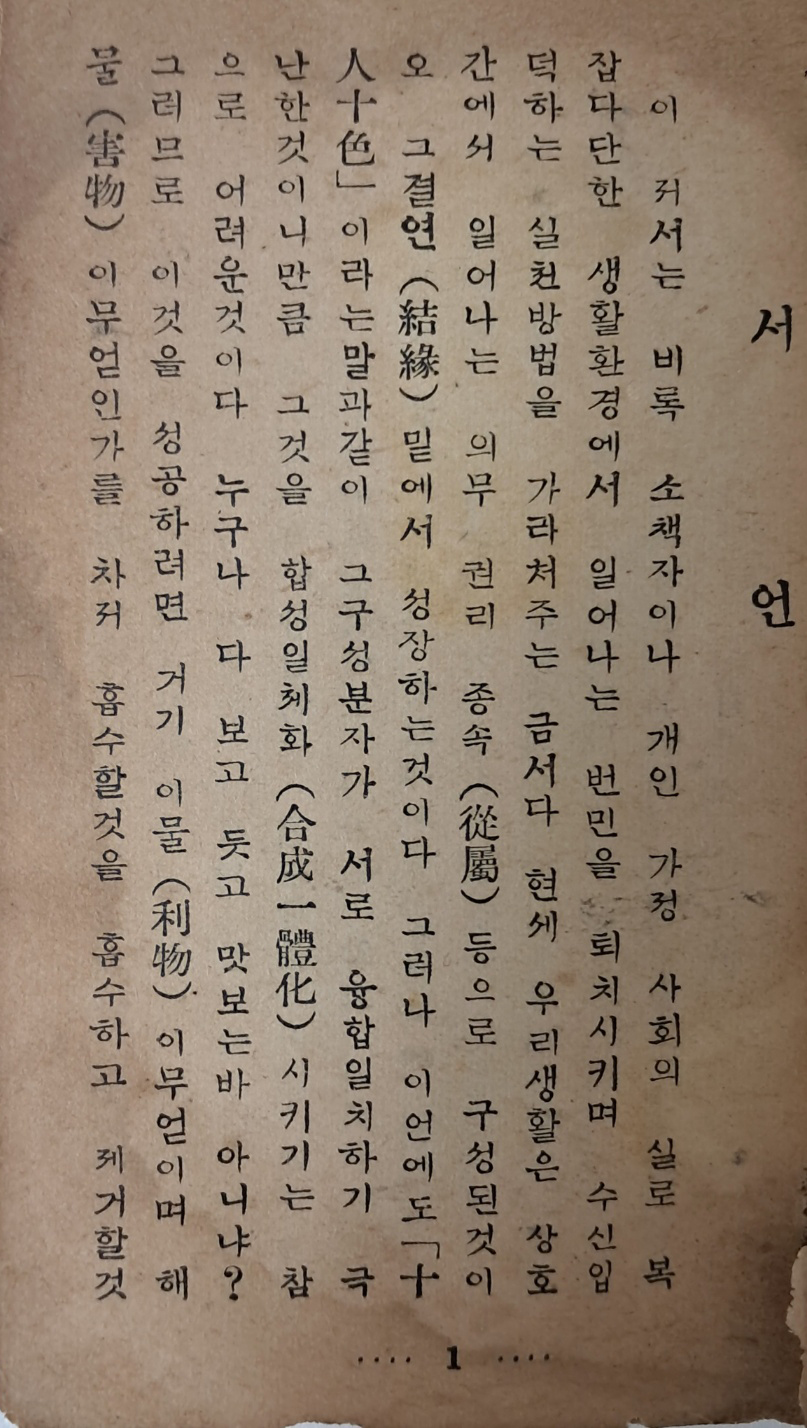 서 언
이 저서는 비록 소책자이나 개인 가정 사회의 실로 복
잡다단한 생활환경에서 일어나는 번민을 퇴치시키며 수신입
덕하는 실천방법을 가라처주는 금서다 현세 우리생활은 상호
간에서 일어나는 의무 권리 종속(從屬)등으로 구성된것이
오 그결연(結緣)밑에서 성장하는것이다 그러나 이언에도「十
人十色」이라는말과같이 그구성분자가 서로 융합일치하기 극
난한것이니만큼 그것을 합성일체화(合成一體化)시키기는 참
으로 어려운것이다 누구나 다 보고 듯고 맛보는바 아니냐?
그러므로 이것을 성공하려면 거기 이물(利物)이무얻이며 해
물(害物)이무얻인가를 차저 흡수할것을 흡수하고 제거할것
···· 1 ····